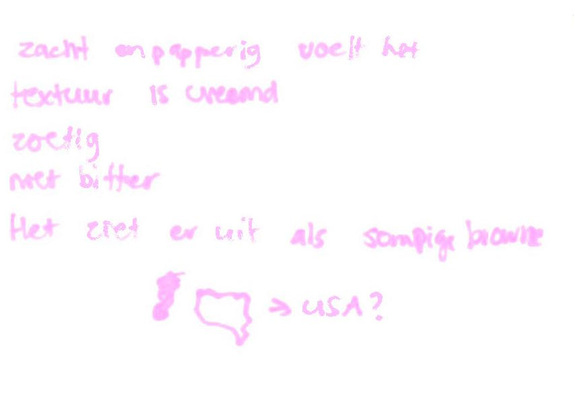 zacht en papperig voelt het
textuur is vreemd
zoetig
niet bitter
Het ziet er uit als sompige brownie
→ USA?